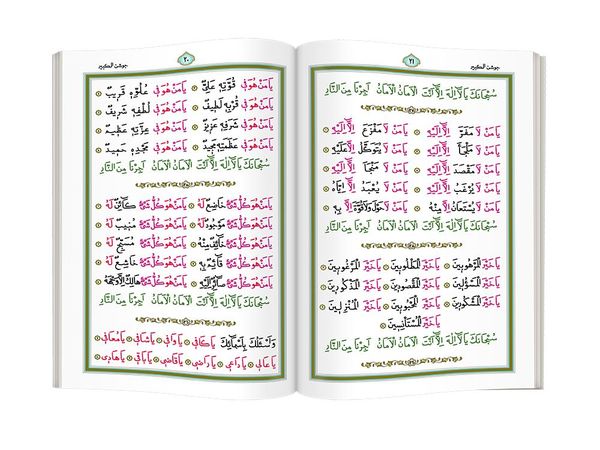 جوشن الكبير ٢٠
يَا مَنْ هُوَ فِي قُوَّتِهِ عَلِيٌّ يَا مَنْ هُوَ فِي عُلُوِّهِ قَرِيبٌ
يَا مَنْ هُوَ فِي قُرْبِهِ لَطِيفٌ يَا مَنْ هُوَ فِي لُطْفِهِ شَرِيفٌ
يَا مَنْ هُوَ فِي شَرَفِهِ عَزِيزٌ يَا مَنْ هُوَ فِي عِزَّتِهِ عَظِيمٌ
يَا مَنْ هُوَ فِي عَظَمَتِهِ مَجِيدٌ يَا مَنْ هُوَ فِي مَجْدِهِ حَمِيدٌ
سُبْحَانَكَ يَا لَا إِلٰهَ إِلَّا أَنْتَ الْأَمَانُ الْأَمَانُ أَجِرْنَا مِنَ النَّارِ
يَا مَنْ هُوَ كُلُّ شَيْءٍ خَاضِعٌ لَهُ يَا مَنْ هُوَ كُلُّ شَيْءٍ كَائِنٌ لَهُ
يَا مَنْ هُوَ كُلُّ شَيْءٍ مَوْجُودٌ لَهُ يَا مَنْ هُوَ كُلُّ شَيْءٍ مُنِيبٌ لَهُ
يَا مَنْ هُوَ كُلُّ شَيْءٍ خَائِفٌ مِنْهُ يَا مَنْ هُوَ كُلُّ شَيْءٍ مُسَبِّحٌ لَهُ
يَا مَنْ هُوَ كُلُّ شَيْءٍ قَائِمٌ بِهِ يَا مَنْ هُوَ كُلُّ شَيْءٍ خَاشِعٌ لَهُ
يَا مَنْ هُوَ كُلُّ شَيْءٍ صَائِرٌ إِلَيْهِ يَا مَنْ هُوَ كُلُّ شَيْءٍ هَالِكٌ إِلَّا وَجْهَهُ
سُبْحَانَكَ يَا لَا إِلٰهَ إِلَّا أَنْتَ الْأَمَانُ الْأَمَانُ أَجِرْنَا مِنَ النَّارِ
وَأَسْئَلُكَ بِأَسْمَائِكَ يَا كَافِي يَا وَافِي يَا شَافِي يَا مُعَافِي
يَا عَالِي يَا دَاعِي يَا رَاضِي يَا قَاضِي يَا بَاقِي يَا هَادِي
٢١ جوشن الكبير
سُبْحَانَكَ يَا لَا إِلٰهَ إِلَّا أَنْتَ الْأَمَانُ الْأَمَانُ أَجِرْنَا مِنَ النَّارِ
يَا مَنْ لَا مَفَرَّ إِلَّا إِلَيْهِ يَا مَنْ لَا مَفْزَعَ إِلَّا إِلَيْهِ
يَا مَنْ لَا مَلْجَأَ إِلَّا إِلَيْهِ يَا مَنْ لَا يُتَوَكَّلُ إِلَّا عَلَيْهِ
يَا مَنْ لَا مَقْصَدَ إِلَّا إِلَيْهِ يَا مَنْ لَا مَنْجَأَ إِلَّا إِلَيْهِ
يَا مَنْ لَا يُرْغَبُ إِلَّا إِلَيْهِ يَا مَنْ لَا يُعْبَدُ إِلَّا إِيَّاهُ
يَا مَنْ لَا يُسْتَعَانُ إِلَّا مِنْهُ يَا مَنْ لَا حَوْلَ وَلَا قُوَّةَ إِلَّا بِهِ
سُبْحَانَكَ يَا لَا إِلٰهَ إِلَّا أَنْتَ الْأَمَانُ الْأَمَانُ أَجِرْنَا مِنَ النَّارِ
يَا خَيْرَ الْمَرْهُوبِينَ يَا خَيْرَ الْمَطْلُوبِينَ يَا خَيْرَ الْمَرْغُوبِينَ
يَا خَيْرَ الْمَسْئُولِينَ يَا خَيْرَ الْمَقْصُودِينَ يَا خَيْرَ الْمَذْكُورِينَ
يَا خَيْرَ الْمَشْكُورِينَ يَا خَيْرَ الْمَحْبُوبِينَ يَا خَيْرَ الْمُنْزِلِينَ
يَا خَيْرَ الْمُسْتَأْنِسِينَ
سُبْحَانَكَ يَا لَا إِلٰهَ إِلَّا أَنْتَ الْأَمَانُ الْأَمَانُ أَجِرْنَا مِنَ النَّارِ